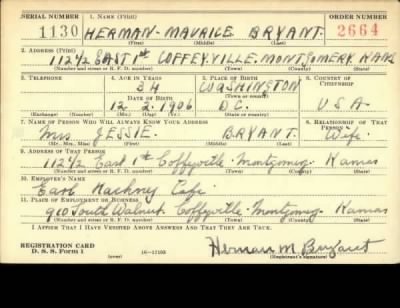 SERIAL NUMBER 1. NAME (Print) ORDER NUMBER
1130 HERMAN-MAURICE BRYANT. 2664
(First) (Middle) (Last)
2. ADDRESS (Print)
112½ EAST 1st COFFEYVILLE, MONTGOMERY KANS
(Number and street or R. F. D. number) (Town) (County) (State)
3. TELEPHONE 4. AGE IN YEARS 5. PLACE OF BIRTH 6. COUNTRY OF CITIZENSHIP
34 WASHINGTON
DATE OF BIRTH (Town or county)
12 2 1906 D.C. U S A
(Exchange) (Number) (Mo.) (Day) (Yr.) (State or country)
7. NAME OF PERSON WHO WILL ALWAYS KNOW YOUR ADDRESS 8. RELATIONSHIP OF THAT PERSON
Mrs JESSIE. BRYANT. Wife.
(Mr., Mrs., Miss) (First) (Middle) (Last)
9. ADDRESS OF THAT PERSON
112½ East 1st Coffeyville. Montgomery. Kansas
(Number and street or R. F. D. number) (Town) (County) (State)
10. EMPLOYER'S NAME
Earl Hackney Cafe.
11. PLACE OF EMPLOYMENT OR BUSINESS
910 South Walnut. Coffeyville. Montgomery. Kansas
(Number and street or R. F. D. number) (Town) (County) (State)
I AFFIRM THAT I HAVE VERIFIED ABOVE ANSWERS AND THAT THEY ARE TRUE.
REGISTRATION CARD
D. S. S. Form 1 (over) 16—17105 Herman M Bryant
(Registrant's signature)